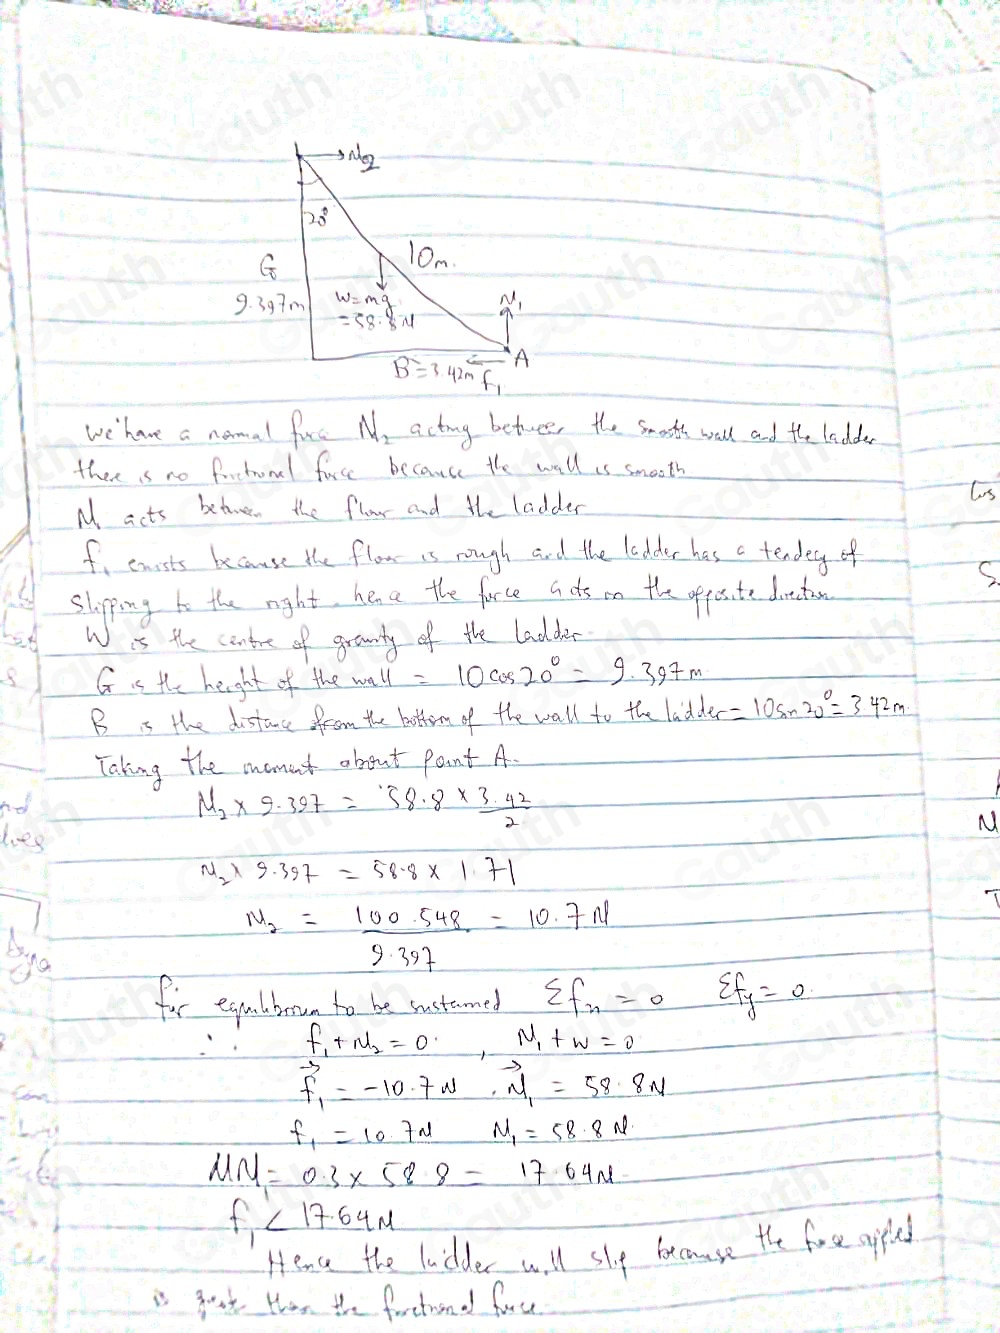 N₂
20°
10m.
G
9.397m
W=mg
=58.8N
N₁
A
B=3.42m
f₁
We have a normal force N₂ acting between the smooth wall and the ladder
there is no frictional force because the wall is smooth
N₁ acts between the floor and the ladder
f₁ exists because the floor is rough and the ladder has a tendecy of
slipping to the right. hence the force acts in the opposite direction
W is the centre of gravity of the ladder.
G is the height of the wall = 10cos20° = 9.397m
B is the distance from the bottom of the wall to the ladder = 10sin20° = 3.42m.
Taking the moment about point A.
N₂ x 9.397 = 58.8 x 3.42/2
N₂ x 9.397 = 58.8 x 1.71
N₂ = 100.548/9.397 = 10.7N
for equilibrium to be sustained Σfx = 0 Σfy = 0.
∴ f₁ + N₂ = 0. , N₁ + w = 0
f₁ = -10.7N . N₁ = 58.8N
f₁ = 10.7N N₁ = 58.8N.
MN₁ = 0.3 x 58.8 = 17.64N.
f₁ < 17.64N
Hence the ladder will slip because the force applied
is greater than the frictional force.